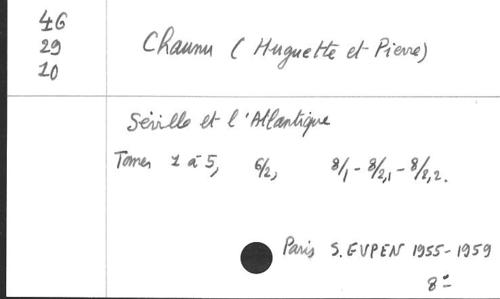 46
29
10
Chaunu (Huguette et Pierre)
Séville et l'Atlantique
Tomes 1 à 5, 6/2, 8/1 - 8/2,1 - 8/2,2.
Paris S.EVPEN 1955-1959
8º